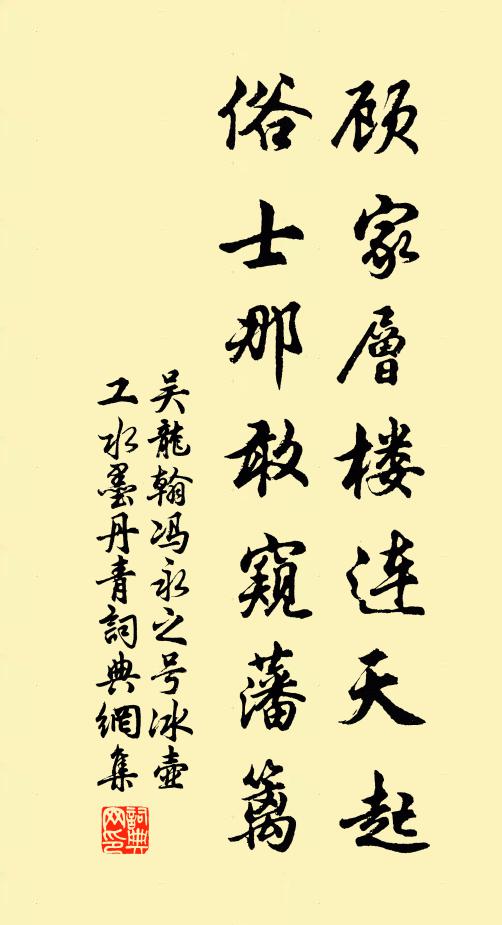 顾家层楼连天起
俗士那敢窥藩篱
吴龙翰冯永之号冰壶
工水墨丹青词典网集
词典
网印